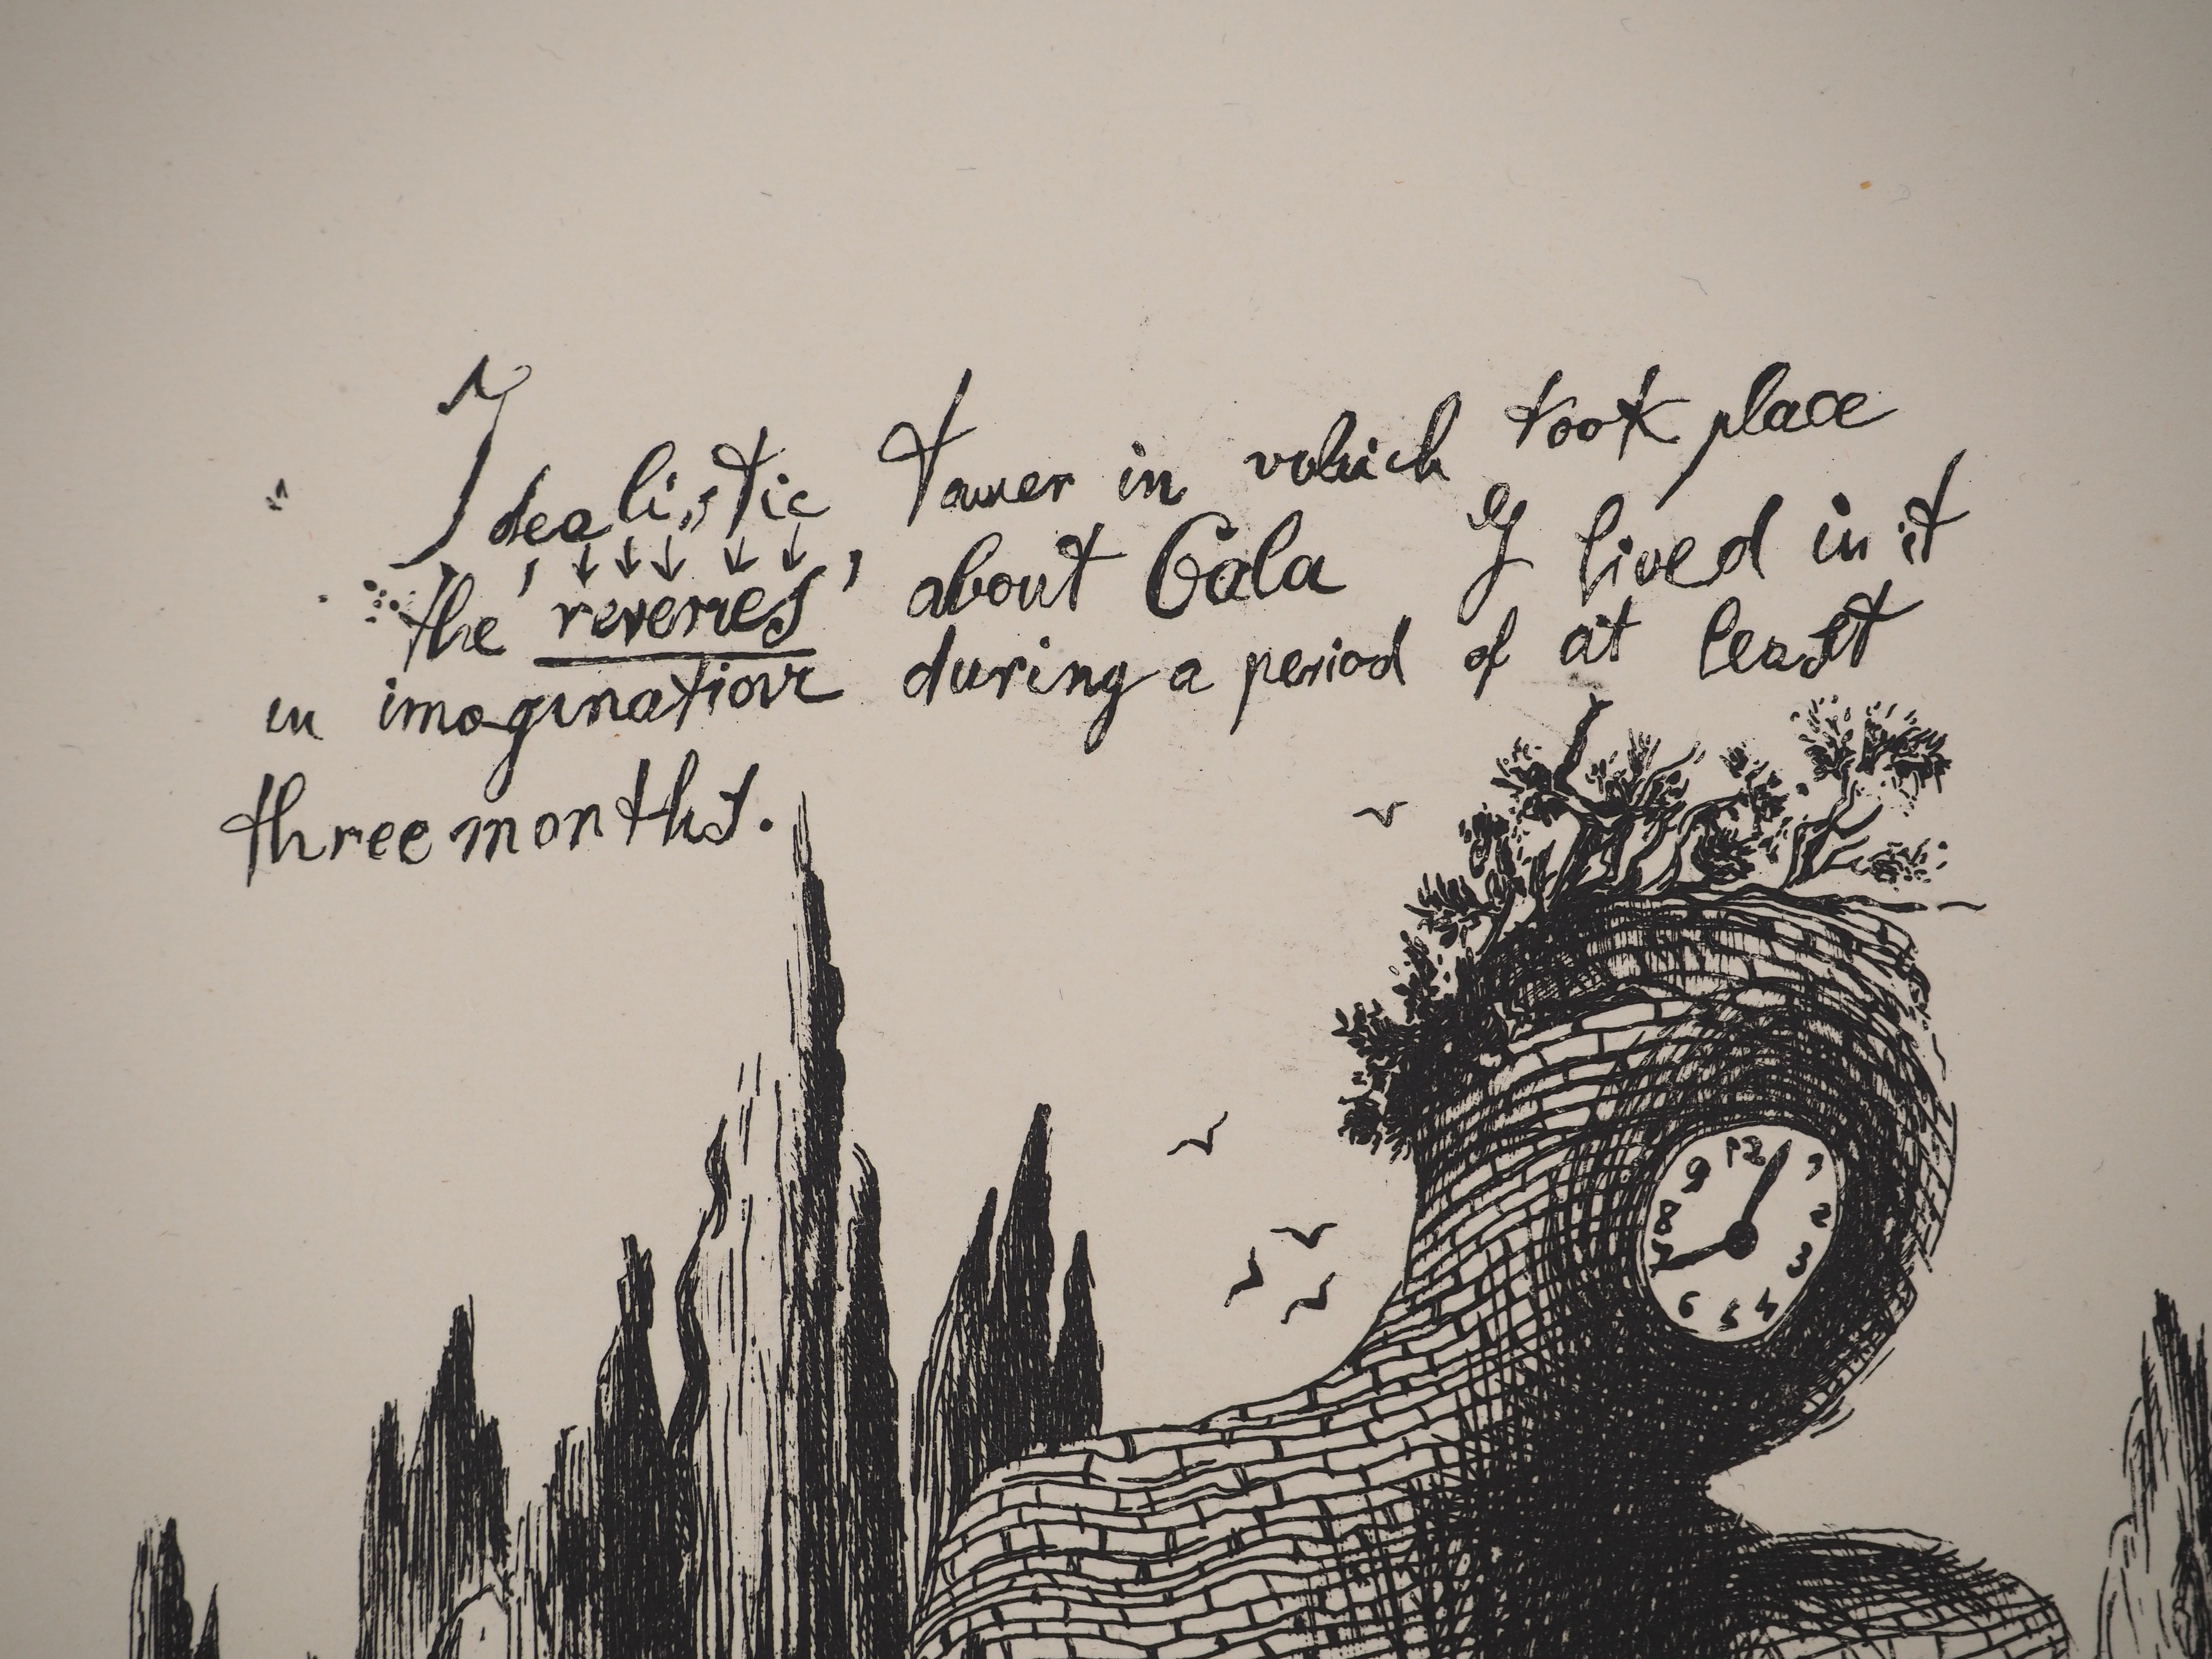 Idealistic Tower in which took place
the 'reveries' about Gala I lived in it
in imagination during a period of at least
three months.
12
1
2
3
4
5
6
7
8
9